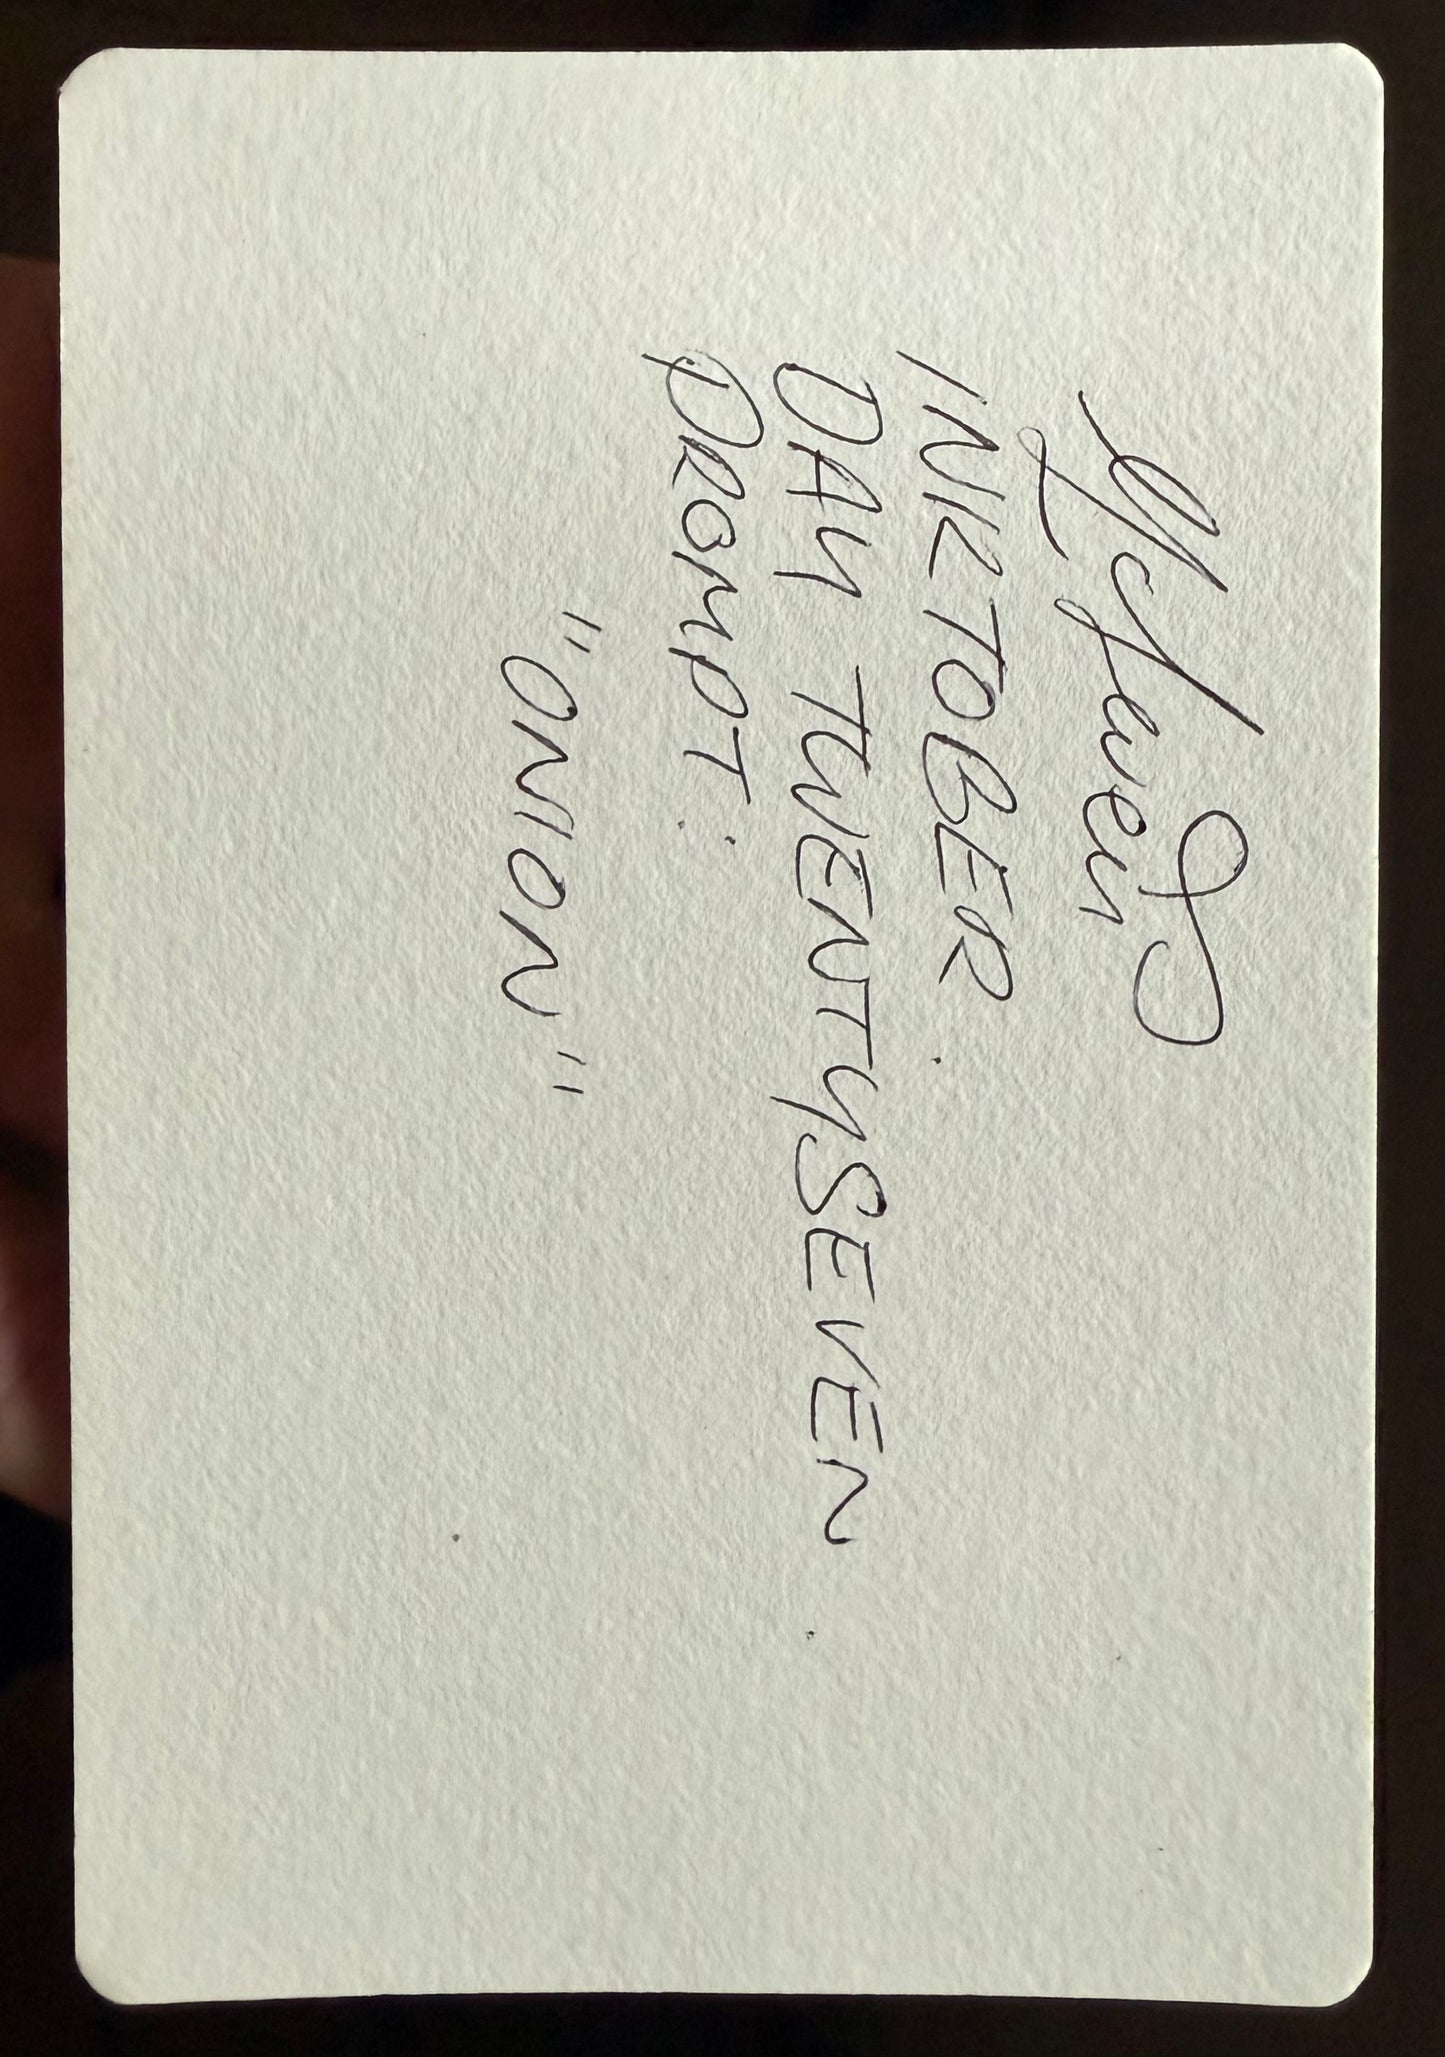 INKTOBER.
DAY TWENTYSEVEN.
PROMPT:
"ONION"